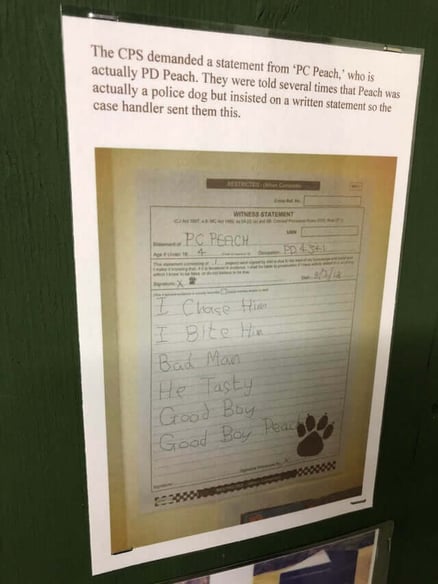 The CPS demanded a statement from 'PC Peach,' who is
actually PD Peach. They were told several times that Peach was
actually a police dog but insisted on a written statement so the
case handler sent them this.
RESTRICTED (When Complete)
WITNESS STATEMENT
URN
Statement of PC PEACH
Age if Under 18 4 Occupation PD 4341
Signature: X
I Chase Him
I Bite Him
Bad Man
He Tasty
Good Boy
Good Boy Peach